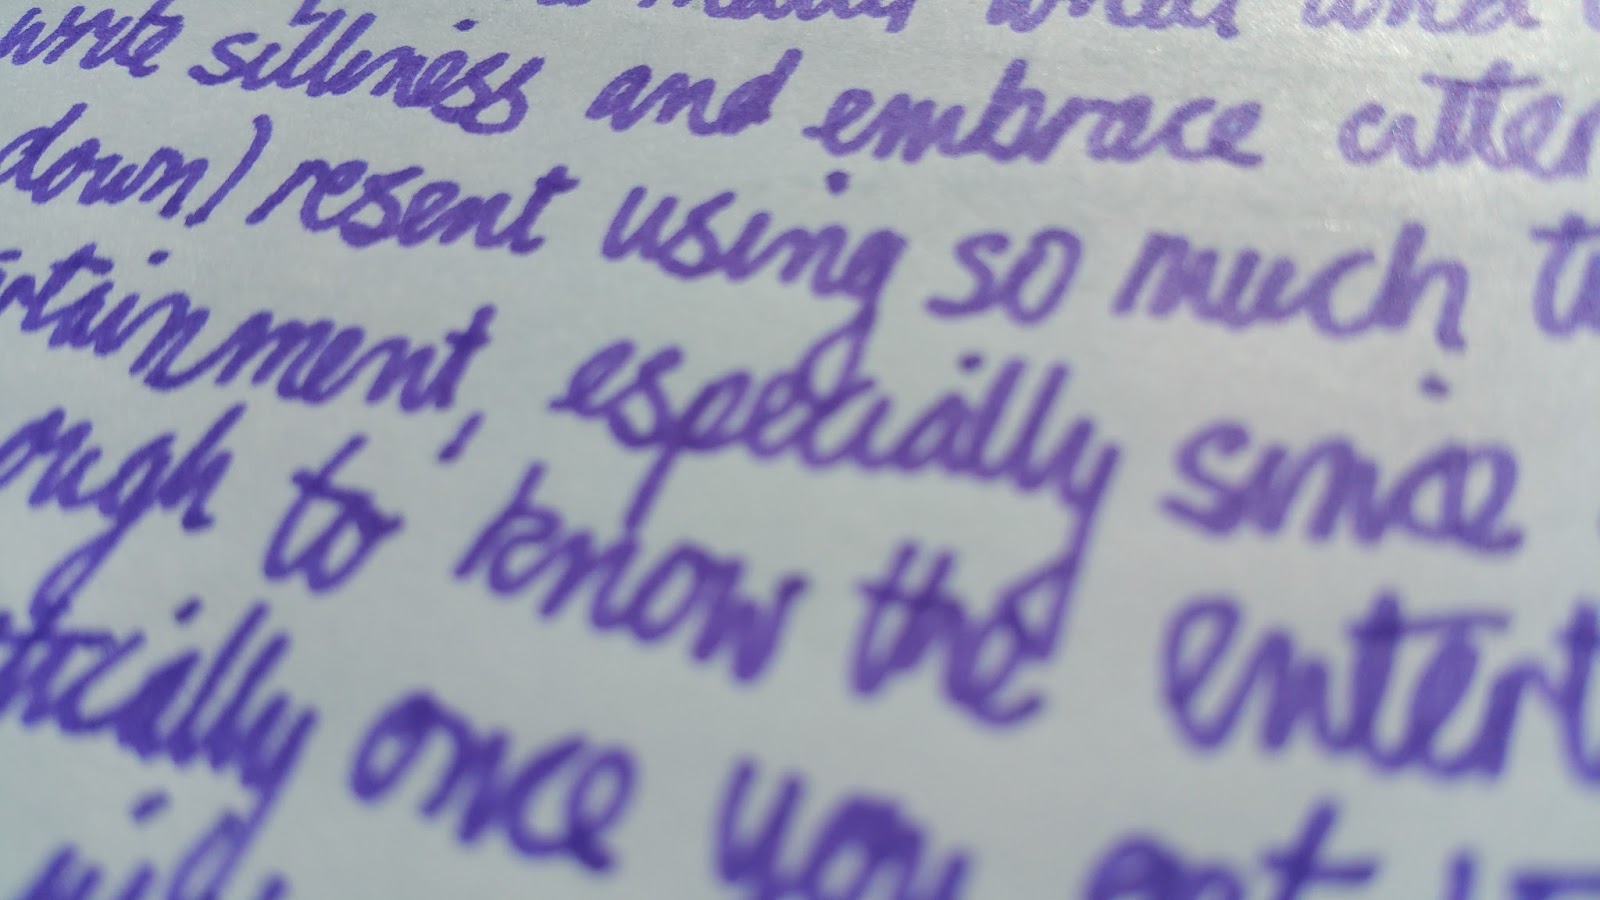 what
write silliness and embrace utter
down) resent using so much
rtainment, especially since
ough to know the entert
tically once you get